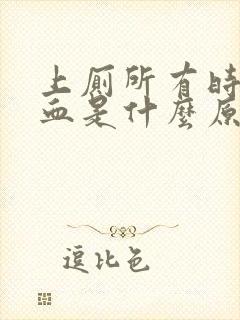 上厕所有时
血是什麼原
逗比色